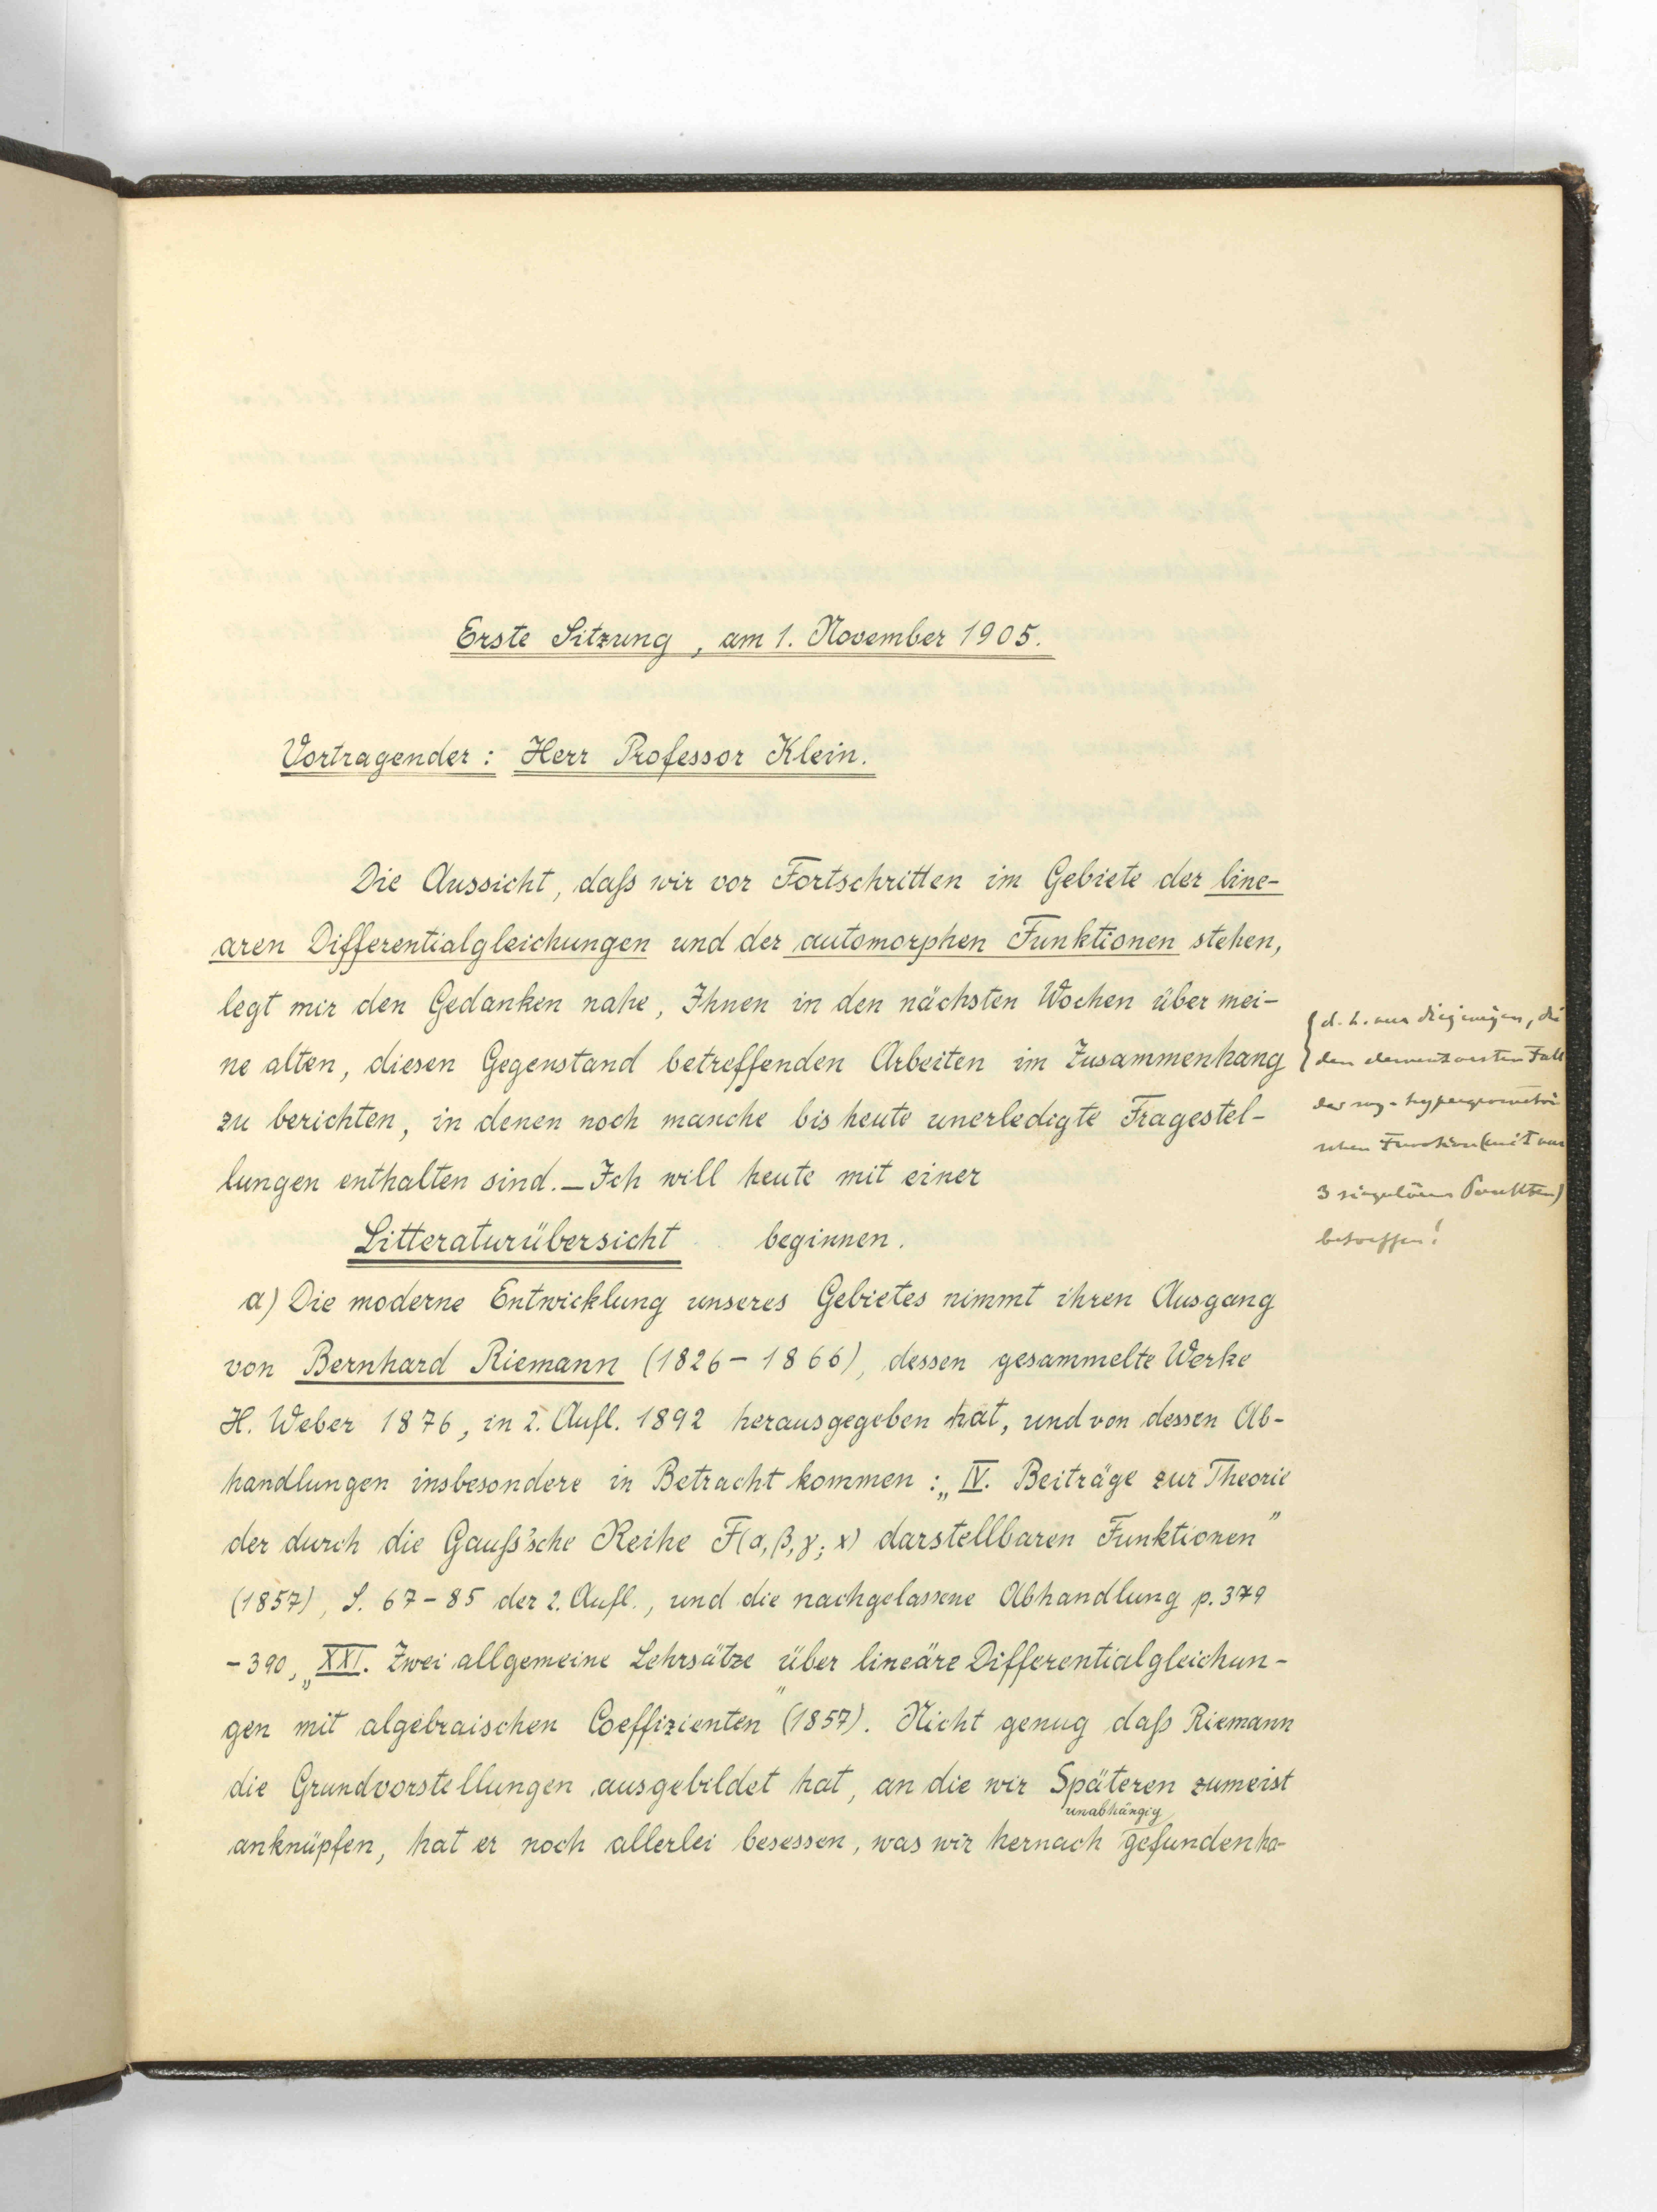 Erste Sitzung, am 1. November 1905.
Vortragender: Herr Professor Klein.
Die Aussicht, daß wir vor Fortschritten im Gebiete der line-
aren Differentialgleichungen und der automorphen Funktionen stehen,
legt mir den Gedanken nahe, Ihnen in den nächsten Wochen über mei-
ne alten, diesen Gegenstand betreffenden Arbeiten im Zusammenhang
zu berichten, in denen noch manche bis heute unerledigte Fragestel-
lungen enthalten sind. — Ich will heute mit einer
Litteraturübersicht beginnen.
a) Die moderne Entwicklung unseres Gebietes nimmt ihren Ausgang
von Bernhard Riemann (1826 - 1866), dessen gesammelte Werke
H. Weber 1876, in 2. Aufl. 1892 herausgegeben hat, und von dessen Ab-
handlungen insbesondere in Betracht kommen: „IV. Beiträge zur Theorie
der durch die Gauß'sche Reihe F(α, β, γ; x) darstellbaren Funktionen"
(1857), S. 67 - 85 der 2. Aufl., und die nachgelassene Abhandlung p. 379
- 390, „XXI. Zwei allgemeine Lehrsätze über lineäre Differentialgleichun-
gen mit algebraischen Coeffizienten" (1857). Nicht genug daß Riemann
die Grundvorstellungen ausgebildet hat, an die wir Späteren zumeist
unabhängig
anknüpfen, hat er noch allerlei besessen, was wir hernach gefunden ha-
{d. h. nur diejenigen, die
den elementarsten Fall
der sog. hypergeometri
schen Function (mit nur
3 singulären Punkten)
betreffen!